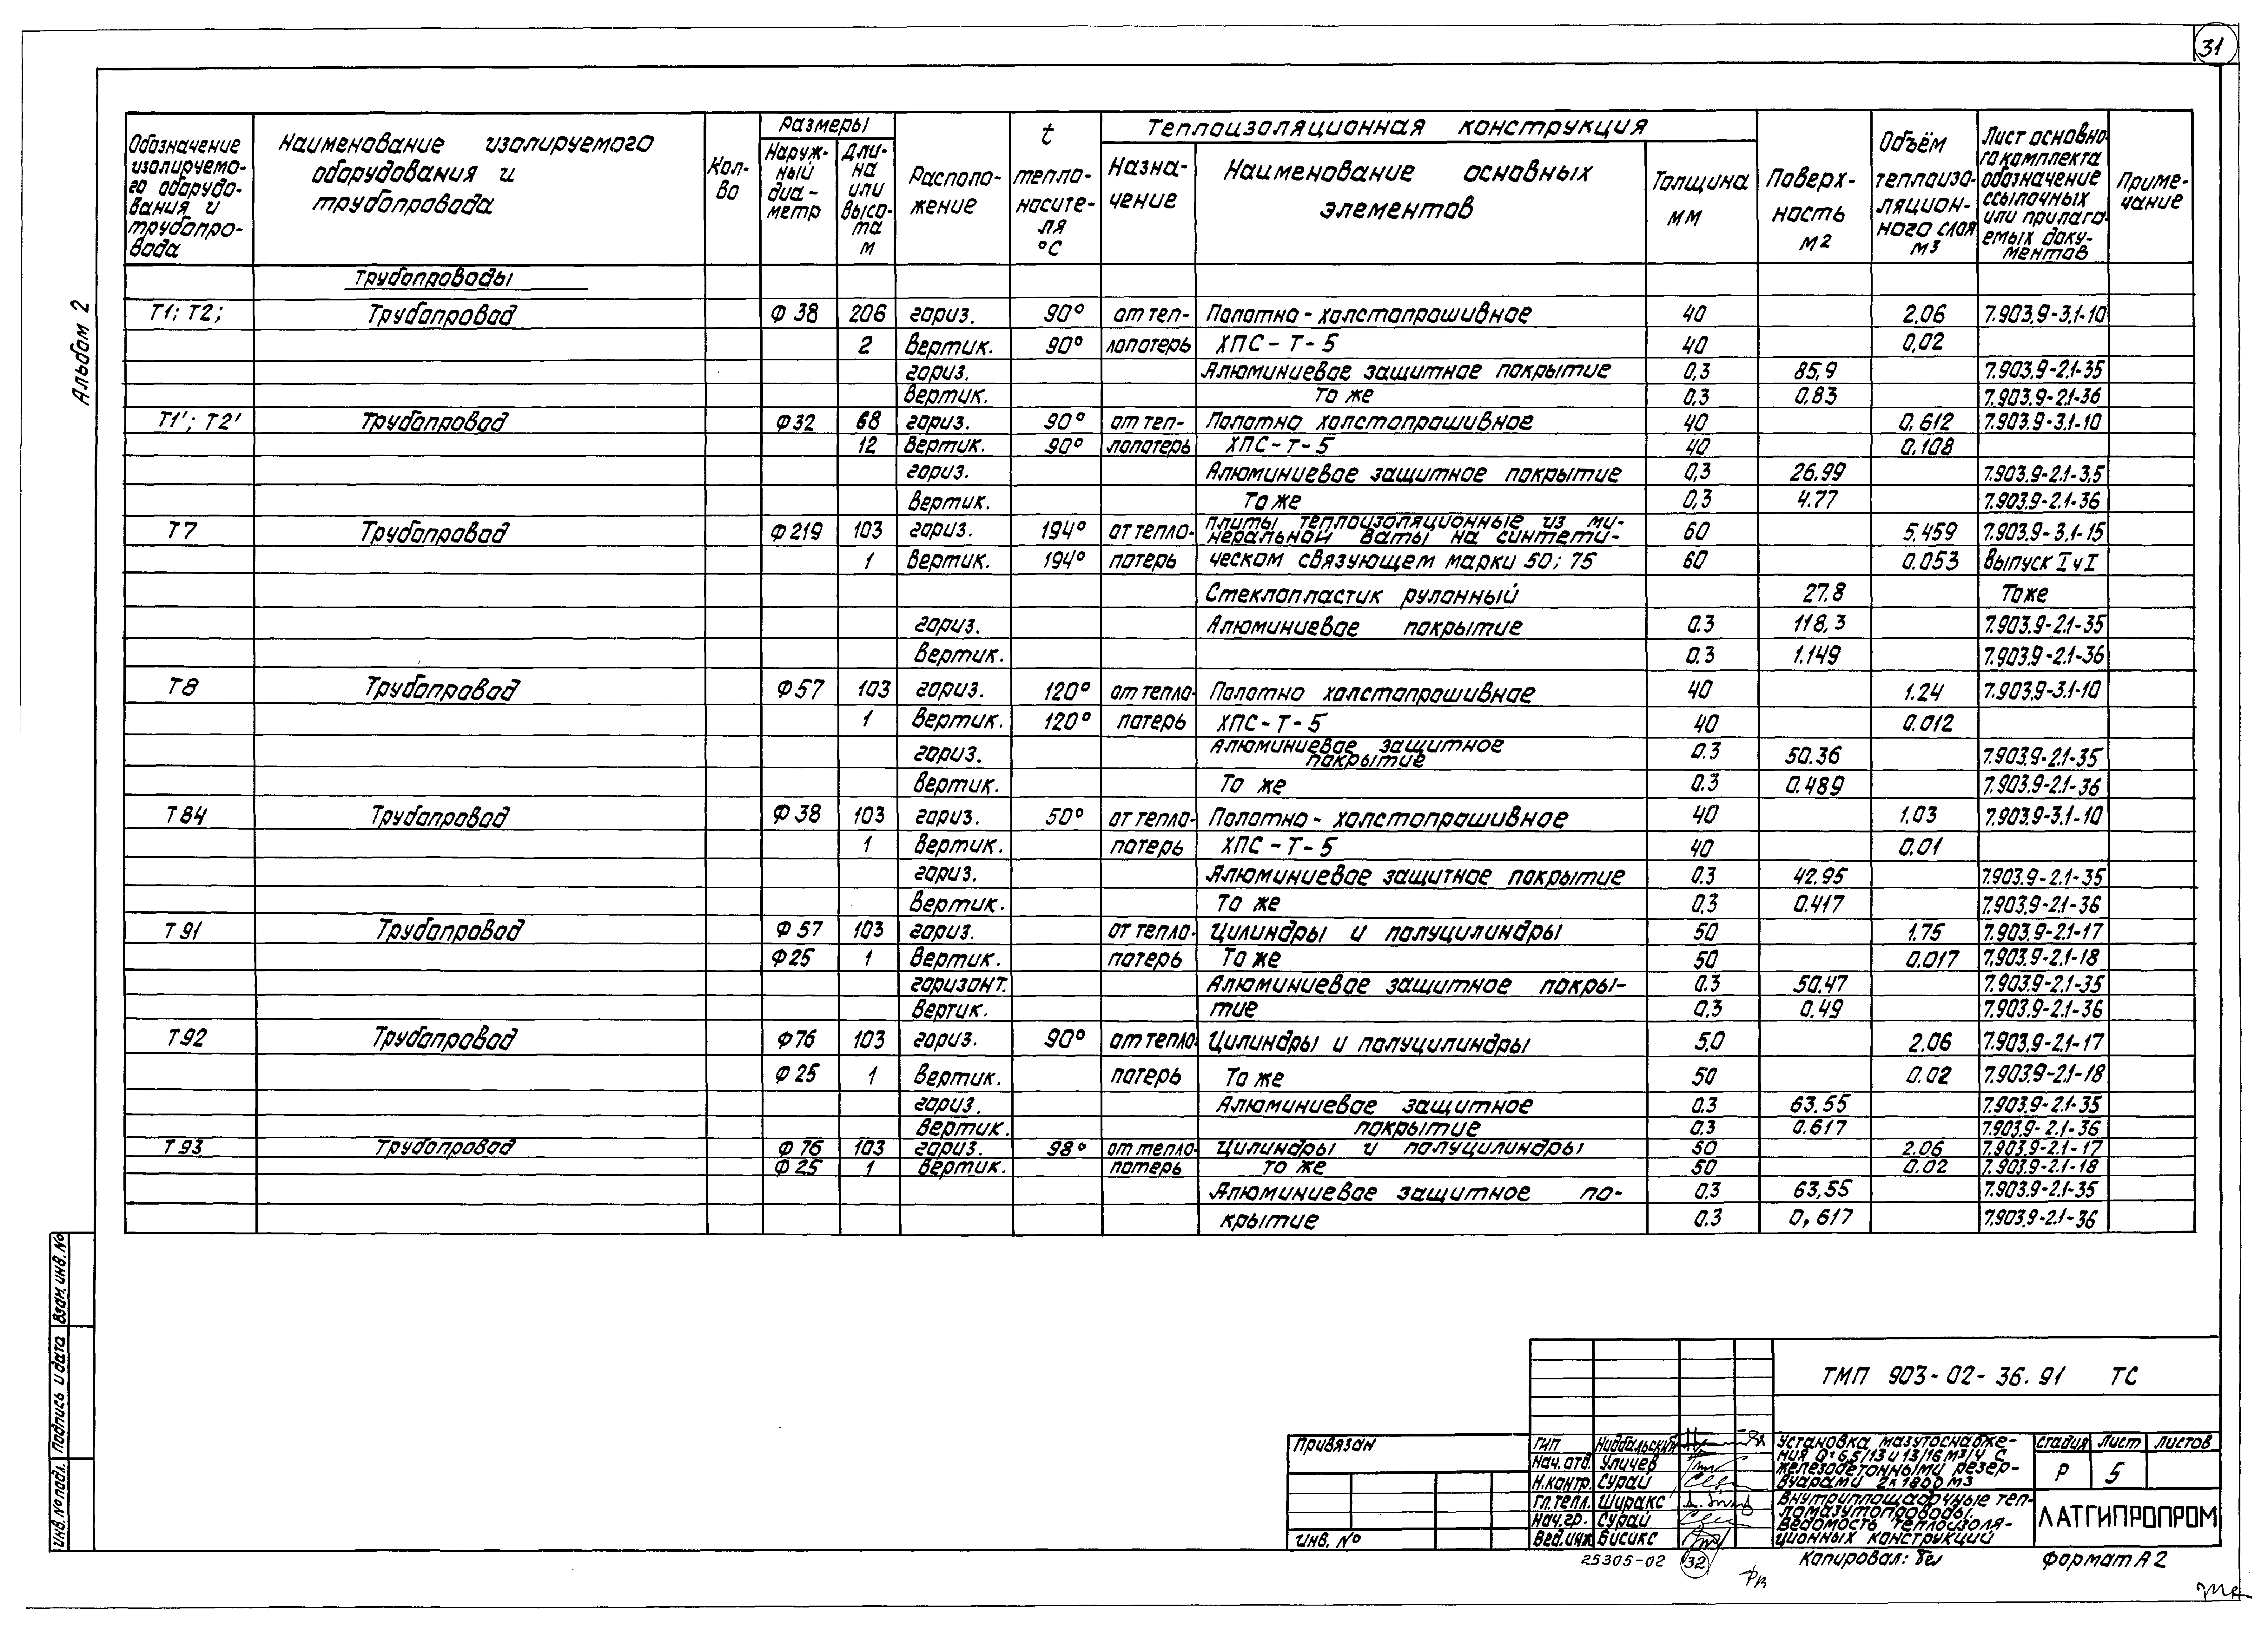 31
Альбом 2
Обозначение изолируемо-го оборудо-вания и трубопро-вода
Наименование изолируемого оборудования и трубопровода
Кол-во
Размеры
Наруж-ный диа-метр
Дли-на или высо-та м
Располо-жение
t тепло-носите-ля °С
Теплоизоляционная конструкция
Назна-чение
Наименование основных элементов
Толщина мм
Поверх-ность м2
Объём теплоизо-ляцион-ного слоя м3
Лист основно-го комплекта обозначение ссылочных или прилага-емых доку-ментов
Приме-чание
Трубопроводы
Т1; Т2; Трубопровод Ф 38 206 гориз. 90° от теп- Полотно-холстопрошивное 40 2.06 7.903.9-3.1-10
2 Вертик. 90° лопотерь ХПС-Т-5 40 0,02
гориз. Алюминиевое защитное покрытие 0,3 85,9 7.903.9-2.1-35
Вертик. То же 0,3 0,83 7.903.9-2.1-36
Т1'; Т2' Трубопровод Ф32 68 гориз. 90° от теп- Полотно холстопрошивное 40 0,612 7.903.9-3.1-10
12 Вертик. 90° лопотерь ХПС-Т-5 40 0,108
гориз. Алюминиевое защитное покрытие 0,3 26.99 7.903.9-2.1-3,5
Вертик. То же 0,3 4.77 7.903.9-2.1-36
Т7 Трубопровод Ф219 103 гориз. 194° от тепло- Плиты теплоизоляционные из ми-неральной ваты на синтети- 60 5.459 7.903.9-3.1-15
1 Вертик. 194° потерь ческом связующем марки 50; 75 60 0.053 Выпуск I ч I
Стеклопластик рулонный 27.8 То же
гориз. Алюминиевое покрытие 0.3 118,3 7.903.9-2.1-35
Вертик. 0.3 1.149 7.903.9-2.1-36
Т8 Трубопровод Ф57 103 гориз. 120° от тепло- Полотно холстопрошивное 40 1.24 7.903.9-3.1-10
1 Вертик. 120° потерь ХПС-Т-5 40 0.012
гориз. Алюминиевое защитное покрытие 0.3 50.36 7.903.9-2.1-35
Вертик. То же 0.3 0.489 7.903.9-2.1-36
Т84 Трубопровод Ф38 103 гориз. 50° от тепло- Полотно-холстопрошивное 40 1.03 7.903.9-3.1-10
1 Вертик. потерь ХПС-Т-5 40 0.01
гориз. Алюминиевое защитное покрытие 0.3 42.95 7.903.9-2.1-35
Вертик. То же 0.3 0.417 7.903.9-2.1-36
Т91 Трубопровод Ф57 103 гориз. от тепло- Цилиндры и полуцилиндры 50 1.75 7.903.9-2.1-17
Ф25 1 Вертик. потерь То же 50 0.017 7.903.9-2.1-18
горизонт. Алюминиевое защитное покры- 0.3 50.47 7.903.9-2.1-35
Вертик. тие 0.3 0.49 7.903.9-2.1-36
Т92 Трубопровод Ф76 103 гориз. 90° от тепло Цилиндры и полуцилиндры 5,0 2.06 7.903.9-2.1-17
Ф25 1 Вертик. потерь То же 50 0.02 7.903.9-2.1-18
гориз. Алюминиевое защитное 0.3 63.55 7.903.9-2.1-35
Вертик. покрытие 0.3 0.617 7.903.9-2.1-36
Т93 Трубопровод Ф76 103 гориз. 98° от тепло- Цилиндры и полуцилиндры 50 2.06 7.903.9-2.1-17
Ф25 1 Вертик. потерь то же 50 0.02 7.903.9-2.1-18
Алюминиевое защитное по- 0.3 63,55 7.903.9-2.1-35
крытие 0.3 0,617 7.903.9-2.1-36
Взам. инв. №
Подпись и дата
Инв. № подл.
ТМП 903-02-36.91 ТС
Привязан
Инв. №
ГИП Нидбальский
Нач.отд. Уличев
Н.контр. Сурай
Гл.тепл. Ширакс
Нач.гр. Сурай
Вед.инж. Бисикс
Установка мазутоснабже-
ния Q=6,5/13 и 13/16 м3/ч с
железобетонными резер-
вуарами 2×1800 м3
Внутриплощадочные теп-
ломазутопроводы.
Ведомость теплоизоля-
ционных конструкций
стадия лист листов
Р 5
ЛАТГИПРОПРОМ
25305-02 32
Копировал:
Формат А2